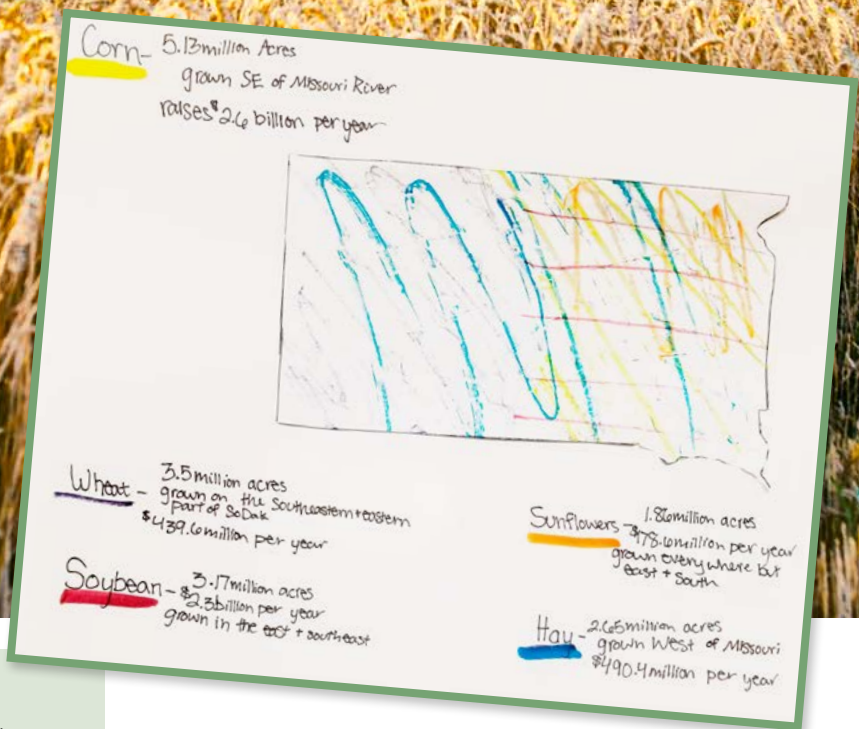 Corn- 5.13million Acres
grown SE of Missouri River
raises $2.6 billion per year
Wheat - 3.5million acres
grown on the Southeastern+eastern
part of SoDak
$439.6million per year
Soybean- 3.17million acres
$2.3billion per year
grown in the east + southeast
Sunflowers - 1.86million acres
$178.6million per year
grown everywhere but
east + South
Hay - 2.65million acres
grown West of Missouri
$490.4million per year